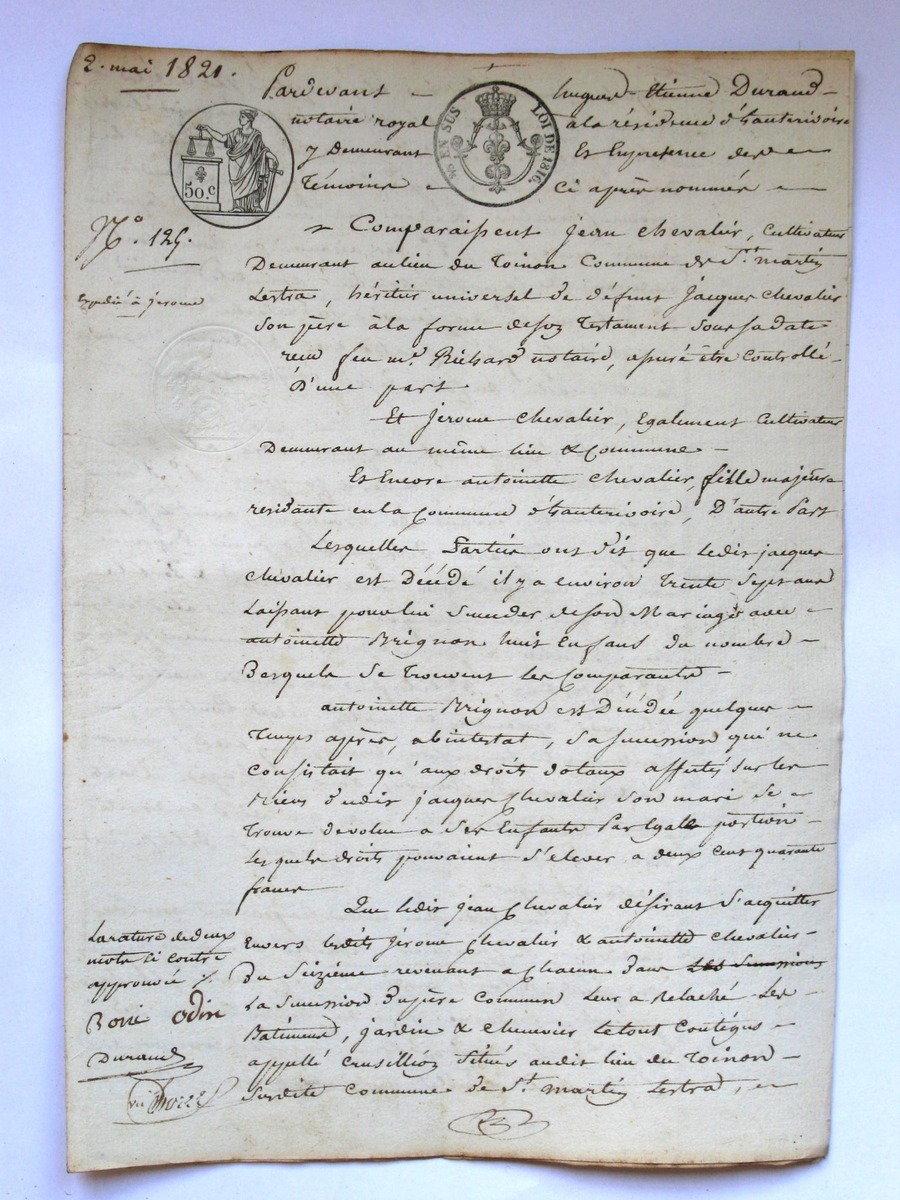 2. mai 1821.
Pardevant hugues-Etienne Durand
notaire royal à la résidence d'hauterivoire
y Demeurant Et En presence des
Témoins ci après nommés
50.c
40 EN SUS LOI DE 1816.
N.o 125.
Expédié à jerome
Comparaissent jean chevalier, cultivateur
Demeurant au lieu du Toinon Commune de St. martin
Lestra, héritier universel de défunt Jacques chevalier
son père à la forme de son Testament sous sa date
reçu feu me. Richard notaire, assuré être controllé
D'une part
Et Jerome chevalier, Egalement cultivateur
Demeurant au même lieu & Commune
Et Encore antoinette chevalier, fille majeure
residante en la Commune d'hauterivoire, D'autre part
Lesquelles Parties ont dit que ledit jacques
chevalier est Décédé il y a environ Trente Sept ans
Laissant pour lui Succéder de son Mariage avec
antoinette Brignon huit Enfans du nombre
Desquels se Trouvent les Comparants
antoinette Brignon est Décédée quelques
Temps après, abintestat, sa succession qui ne
consistait qu'aux droits dotaux affectés sur les
Biens dudit jacques chevalier son mari se
Trouve devolue a ses Enfants Par Egalle portion
Lesquels droits pouvaient s'elever a deux cent quarante
francs
Que ledit jean Chevalier désirant s'acquitter
Envers lesdits Jerome chevalier & antoinette chevalier
Du Seizième revenant a chacun dans Les Successions
La Succession du père commun leur a Relaché Les
Batiments, jardin & chenevier le tout contigus
appellé Crusillion situés audit lieu du Toinon
Susdite Commune de St. martin Lestra,
La rature de deux
mots ci contre
approuvée
Boni Odin
Durand